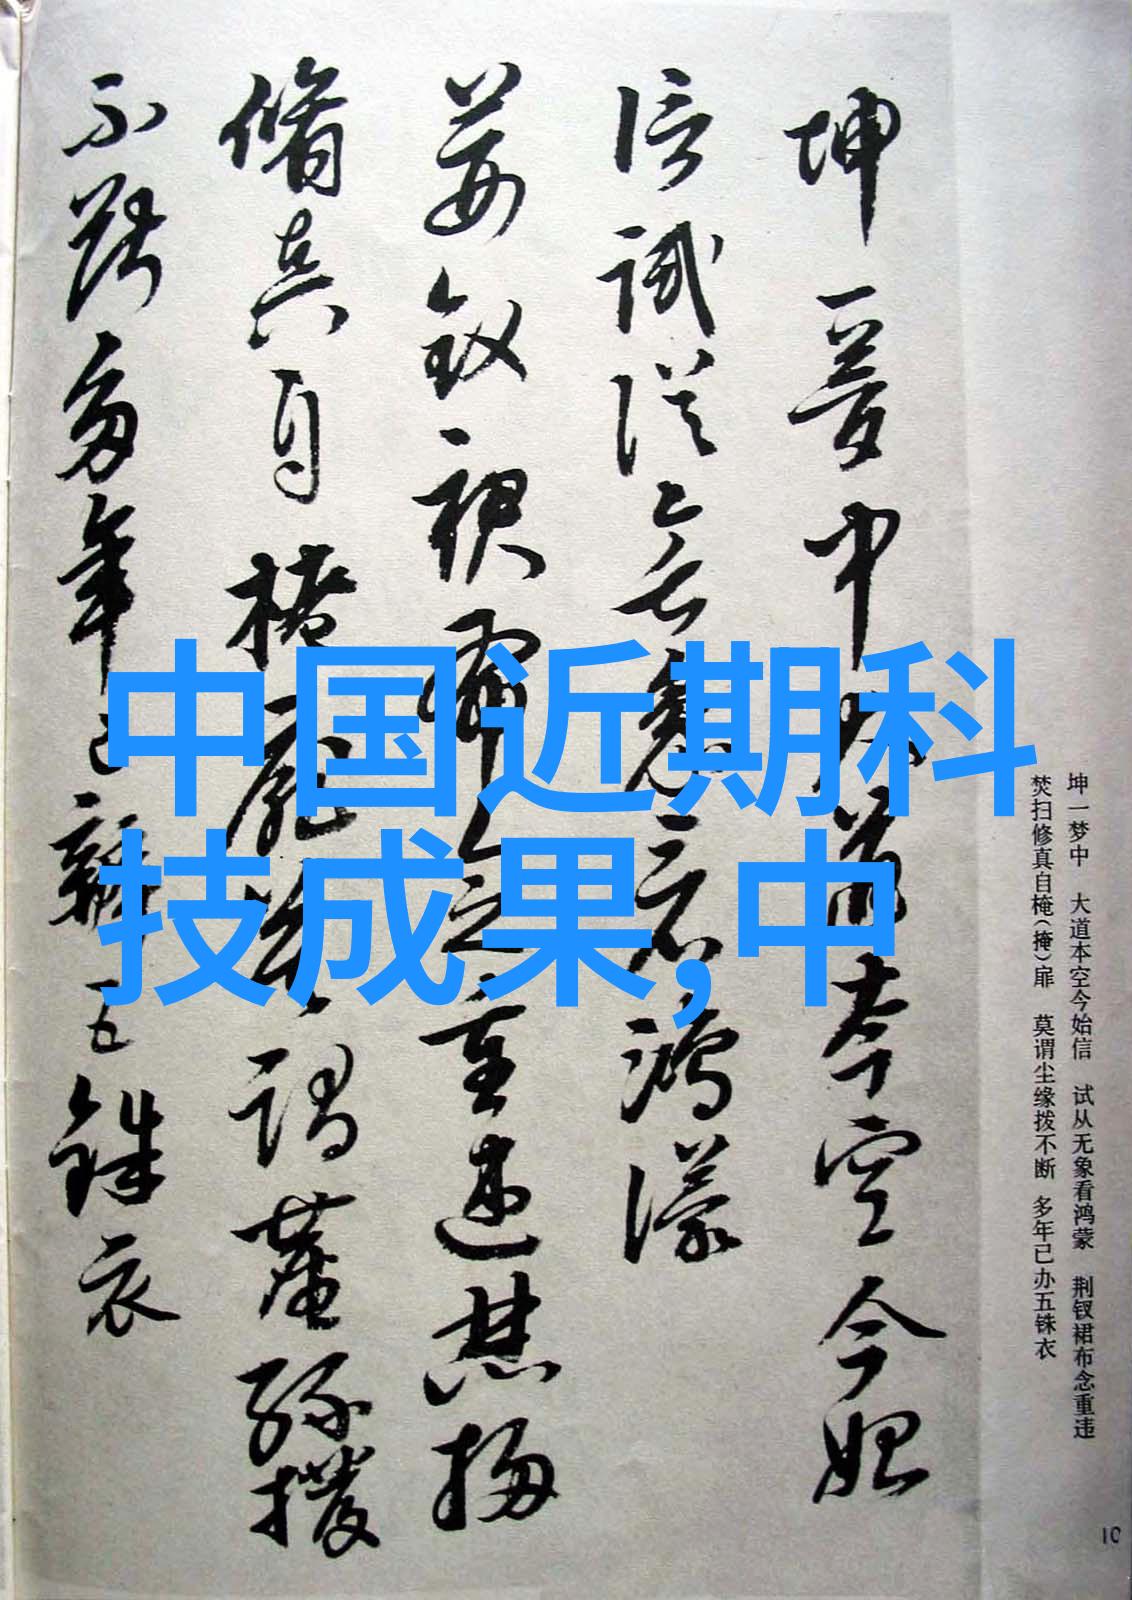 坤一夢中大道本空今始
信試從无象看鴻濛
荊釵裙布念重違焚掃
脩真自掩扉莫謂塵緣撥
不斷多年已辦五銖衣
中国近期科
技成果,中
坤一梦中 大道本空今始信 试从无象看鸿蒙 荆钗裙布念重违
焚扫修真自(掩)扉 莫谓尘缘拨不断 多年已办五铢衣
10